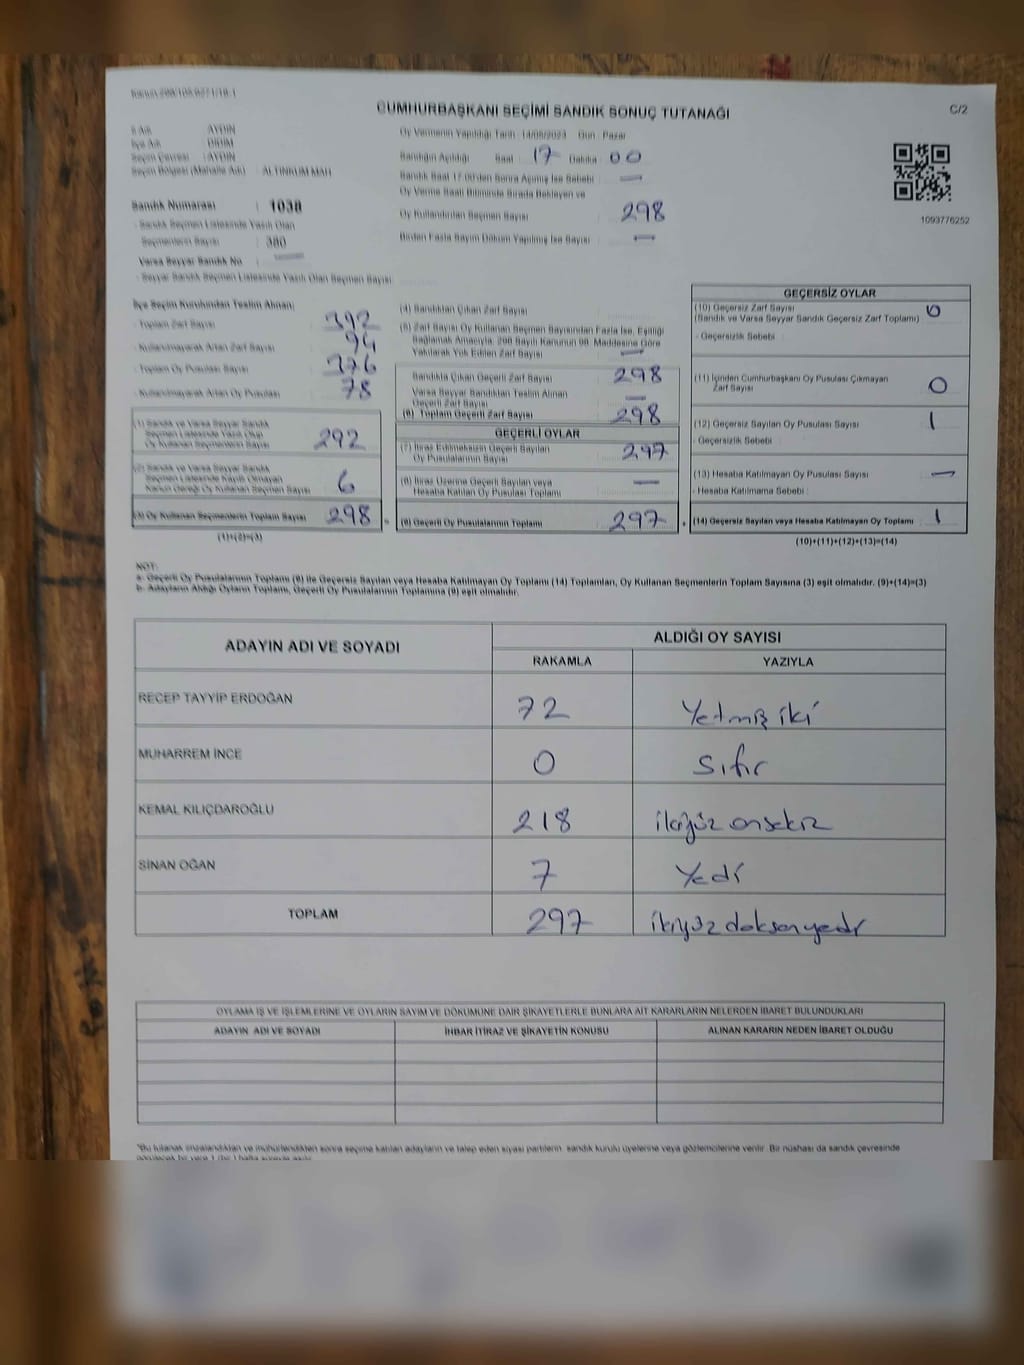 C/2
CUMHURBAŞKANI SEÇİMİ SANDIK SONUÇ TUTANAĞI
İl Adı : AYDIN
İlçe Adı : DİDİM
Seçim Çevresi : AYDIN
Seçim Bölgesi (Mahalle Adı) : ALTINKUM MAH
Sandık Numarası : 1038
- Sandık Seçmen Listesinde Yazılı Olan
Seçmenlerin Sayısı : 380
Varsa Seyyar Sandık No —
- Seyyar Sandık Seçmen Listesinde Yazılı Olan Seçmen Sayısı
Oy Vermenin Yapıldığı Tarih : 14/05/2023 Gün : Pazar
Sandığın Açıldığı Saat : 17 Dakika : 00
Sandık Saat 17:00'den Sonra Açılmış İse Sebebi : —
Oy Verme Saati Bitiminde Sırada Bekleyen ve
Oy Kullandırılan Seçmen Sayısı : 298
Birden Fazla Sayım Döküm Yapılmış İse Sayısı : —
1093776252
İlçe Seçim Kurulundan Teslim Alınan;
- Toplam Zarf Sayısı : 392
- Kullanılmayarak Artan Zarf Sayısı : 94
- Toplam Oy Pusulası Sayısı : 376
- Kullanılmayarak Artan Oy Pusulası : 78
(1) Sandık ve Varsa Seyyar Sandık
Seçmen Listesinde Yazılı Olup
Oy Kullanan Seçmenlerin Sayısı 292
(2) Sandık ve Varsa Seyyar Sandık
Seçmen Listesinde Kayıtlı Olmayan
Kanun Gereği Oy Kullanan Seçmen Sayısı 6
(3) Oy Kullanan Seçmenlerin Toplam Sayısı 298
(1)+(2)=(3)
(4) Sandıktan Çıkan Zarf Sayısı
(5) Zarf Sayısı Oy Kullanan Seçmen Sayısından Fazla İse, Eşitliği
Sağlamak Amacıyla, 298 Sayılı Kanunun 98. Maddesine Göre
Yakılarak Yok Edilen Zarf Sayısı —
Sandıkta Çıkan Geçerli Zarf Sayısı 298
Varsa Seyyar Sandıktan Teslim Alınan
Geçerli Zarf Sayısı —
(6) Toplam Geçerli Zarf Sayısı 298
GEÇERLİ OYLAR
(7) İtiraz Edilmeksizin Geçerli Sayılan
Oy Pusulalarının Sayısı 297
(8) İtiraz Üzerine Geçerli Sayılan veya
Hesaba Katılan Oy Pusulası Toplamı —
(9) Geçerli Oy Pusulalarının Toplamı 297
GEÇERSİZ OYLAR
(10) Geçersiz Zarf Sayısı 0
(Sandık ve Varsa Seyyar Sandık Geçersiz Zarf Toplamı)
- Geçersizlik Sebebi :
(11) İçinden Cumhurbaşkanı Oy Pusulası Çıkmayan
Zarf Sayısı 0
(12) Geçersiz Sayılan Oy Pusulası Sayısı 1
- Geçersizlik Sebebi :
(13) Hesaba Katılmayan Oy Pusulası Sayısı —
- Hesaba Katılmama Sebebi :
(14) Geçersiz Sayılan veya Hesaba Katılmayan Oy Toplamı 1
(10)+(11)+(12)+(13)=(14)
NOT:
a- Geçerli Oy Pusulalarının Toplamı (9) ile Geçersiz Sayılan veya Hesaba Katılmayan Oy Toplamı (14) Toplamları, Oy Kullanan Seçmenlerin Toplam Sayısına (3) eşit olmalıdır. (9)+(14)=(3)
b- Adayların Aldığı Oyların Toplamı, Geçerli Oy Pusulalarının Toplamına (9) eşit olmalıdır.
ADAYIN ADI VE SOYADI ALDIĞI OY SAYISI
RAKAMLA YAZIYLA
RECEP TAYYİP ERDOĞAN 72 Yetmiş iki
MUHARREM İNCE 0 Sıfır
KEMAL KILIÇDAROĞLU 218 ikiyüz onsekiz
SİNAN OĞAN 7 Yedi
TOPLAM 297 ikiyüz doksan yedi
OYLAMA İŞ VE İŞLEMLERİNE VE OYLARIN SAYIM VE DÖKÜMÜNE DAİR ŞİKAYETLERLE BUNLARA AİT KARARLARIN NELERDEN İBARET BULUNDUKLARI
ADAYIN ADI VE SOYADI İHBAR İTİRAZ VE ŞİKAYETİN KONUSU ALINAN KARARIN NEDEN İBARET OLDUĞU
*Bu tutanak imzalandıktan ve mühürlendikten sonra seçime katılan adayların ve talep eden siyasi partilerin sandık kurulu üyelerine veya gözlemcilerine verilir. Bir nüshası da sandık çevresinde